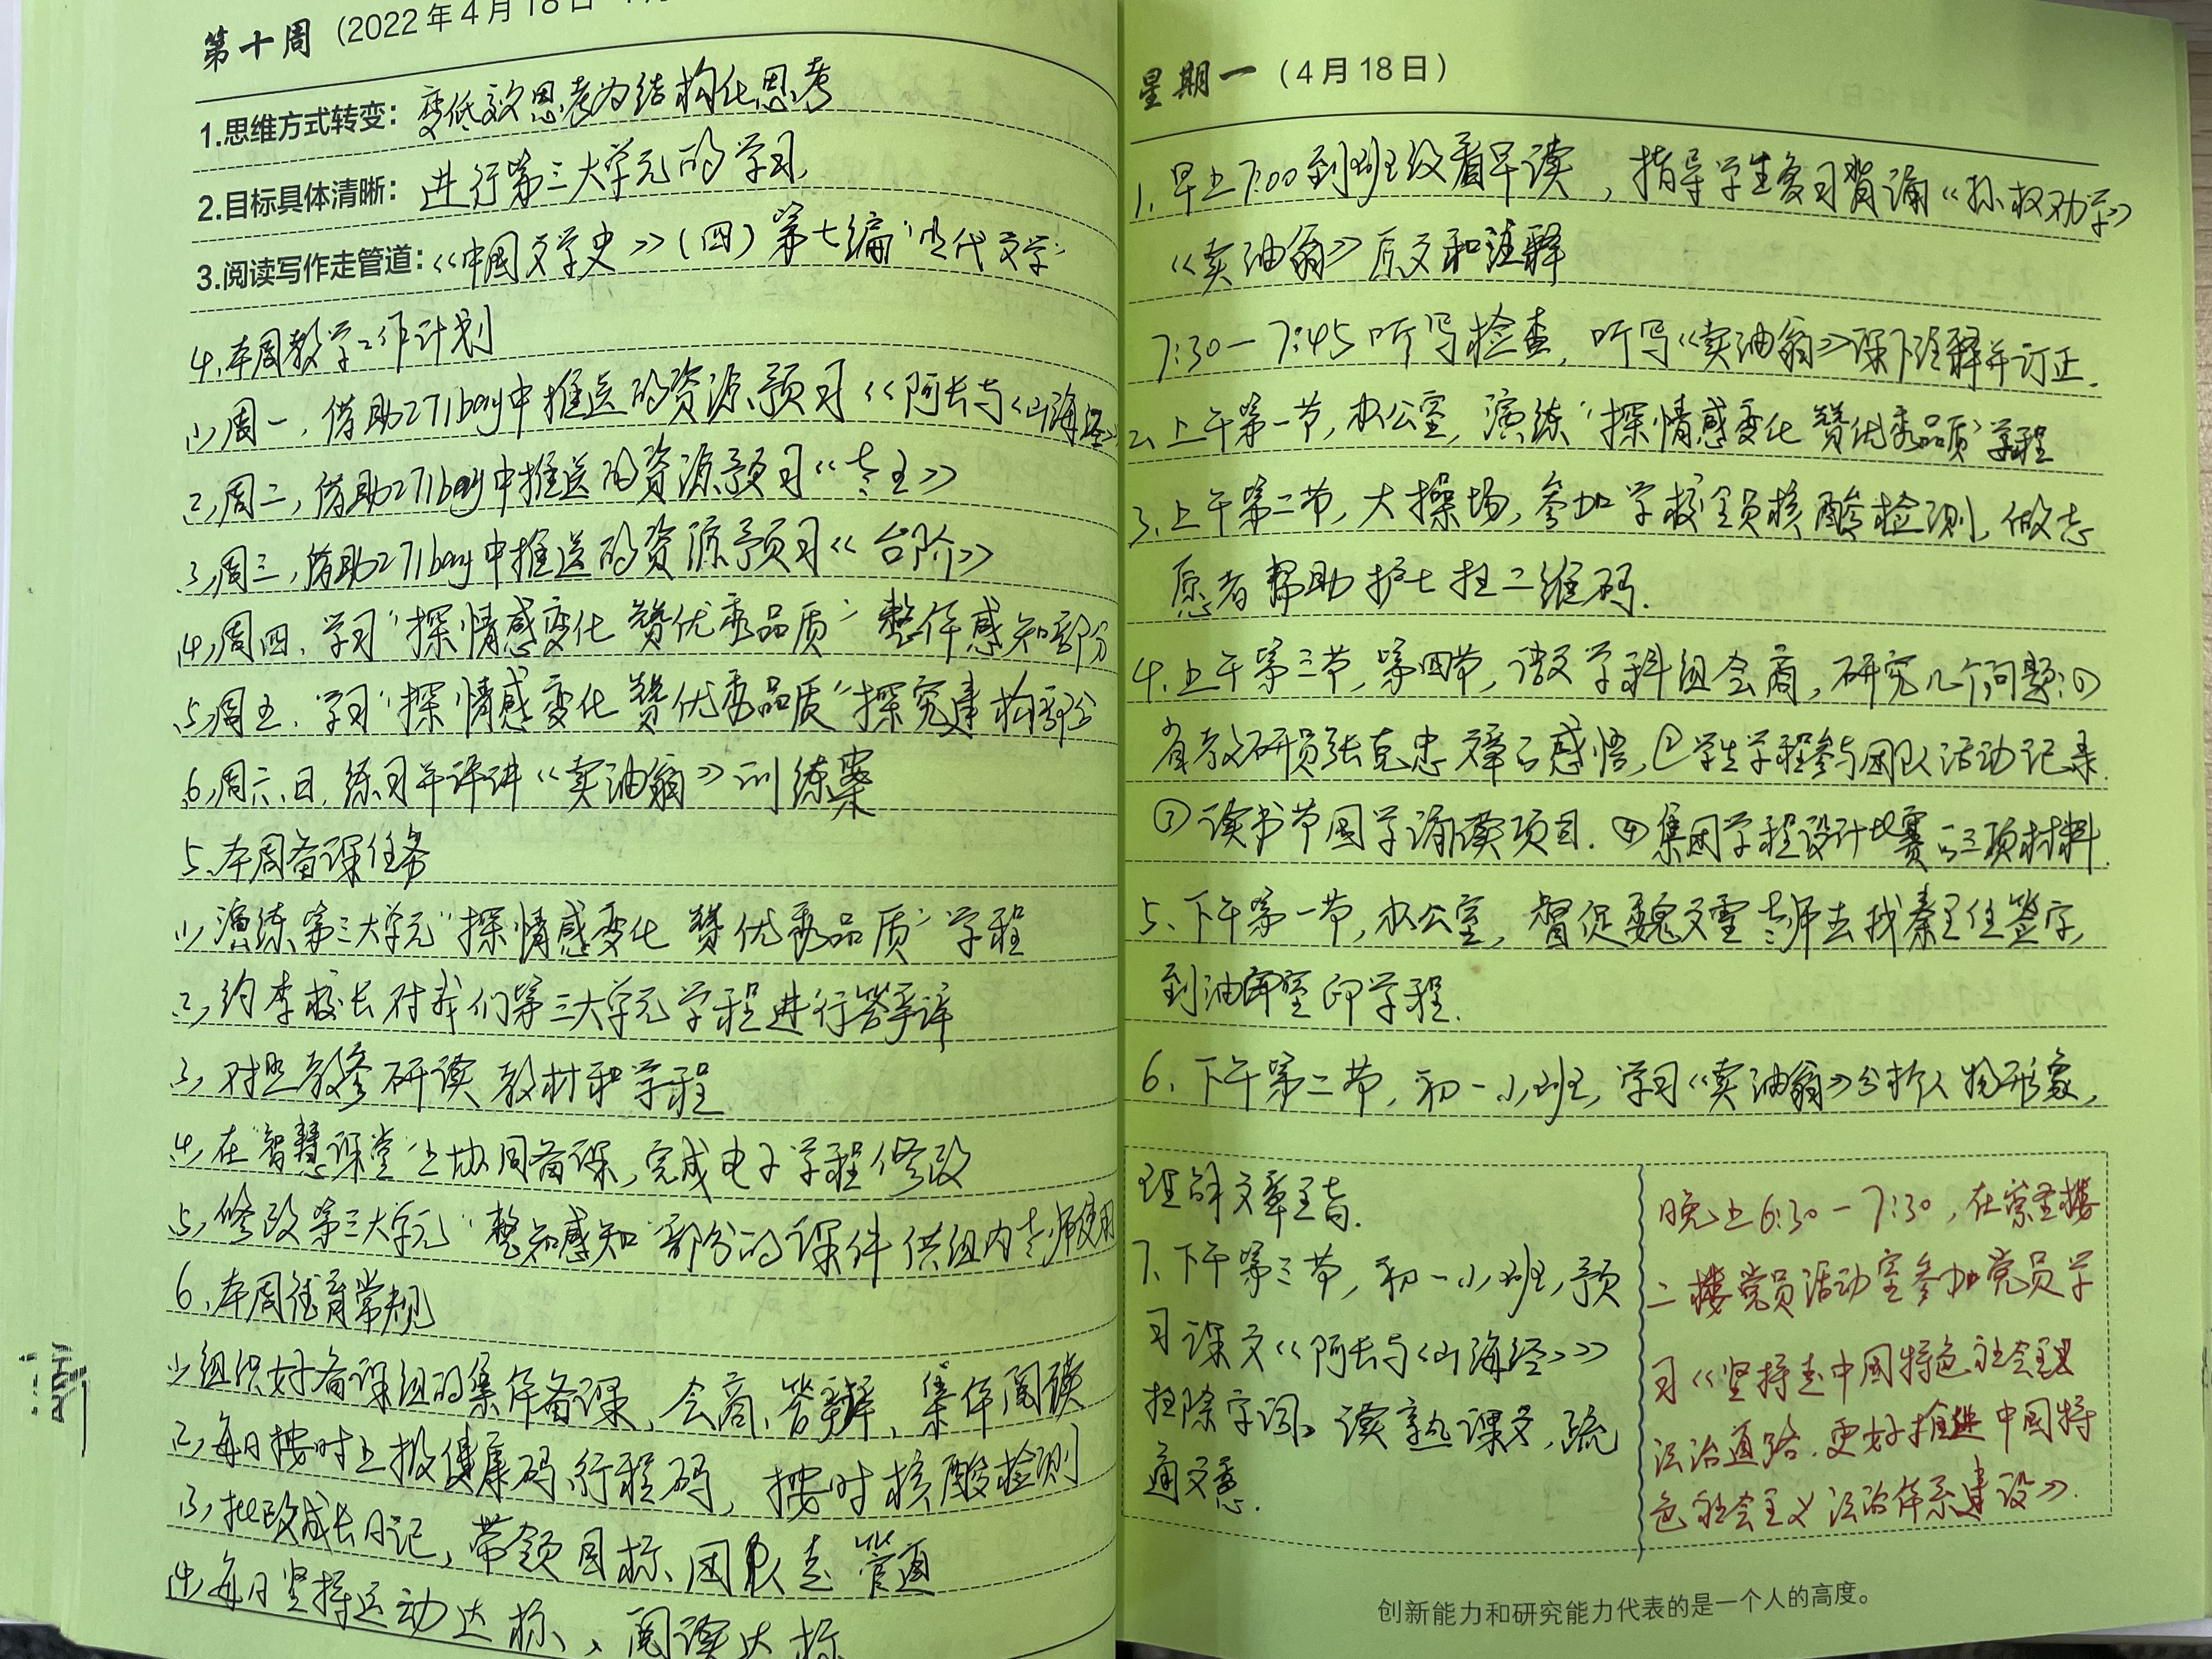 第十周 (2022年4月18日
1.思维方式转变：变低效思考为结构化思考
2.目标具体清晰：进行第三大单元的学习，
3.阅读写作走管道：《中国文学史》(四)第七编“近代文学”
4.本周教学工作计划
(1)周一，借助271bay中推送的资源预习《阿长与〈山海经〉
(2)周二，借助271bay中推送的资源预习《老王》
(3)周三，借助271bay中推送的资源预习《台阶》
(4)周四，学习“探情感变化 赞优秀品质”整体感知部分
(5)周五，学习“探情感变化 赞优秀品质”探究建构部分
(6)周六、日，练习并评讲《卖油翁》训练案
5.本周备课任务
(1)演练第三大单元“探情感变化 赞优秀品质”学程
(2)约李校长对我们第三大单元学程进行答辩评
(3)对照教参研读教材和学程
(4)在“智慧课堂”上协同备课，完成电子学程修改
(5)修改第三大单元“整知感知”部分的课件供组内老师使用
6.本周德育常规
(1)组织好备课组的集体备课、会商、答辩、集体阅读
(2)每日按时上报健康码、行程码，按时核酸检测
(3)批改成长日记，带领目标、团队走管道
(4)每日坚持运动达标、阅读达标
星期一 (4月18日)
1.早上7:00到班级看早读，指导学生复习背诵《孙权劝学》
《卖油翁》原文和注释
7:30—7:45 听写检查，听写《卖油翁》课下注释并订正.
2.上午第一节，办公室，演练“探情感变化 赞优秀品质”学程
3.上午第二节，大操场，参加学校全员核酸检测，做志
愿者帮助护士扫二维码.
4.上午第三节，第四节，语文学科组会商，研究几个问题：①
省教研员张克忠文章的感悟，②学生学程参与团队活动记录.
③读书节国学诵读项目.④集团学程设计比赛的三项材料.
5.下午第一节，办公室，督促魏文雪老师去找秦主任签字，
到油印室印学程.
6.下午第二节，初一小班，学习《卖油翁》分析人物形象，
理解文章主旨.
7.下午第三节，初一小班，预
习课文《阿长与〈山海经〉》
扫除字词，读熟课文，疏
通文意.
晚上6:30—7:30，在崇圣楼
二楼党员活动室参加党员学
习《坚持走中国特色社会主义
法治道路.更好推进中国特
色社会主义法治体系建设》.
创新能力和研究能力代表的是一个人的高度。